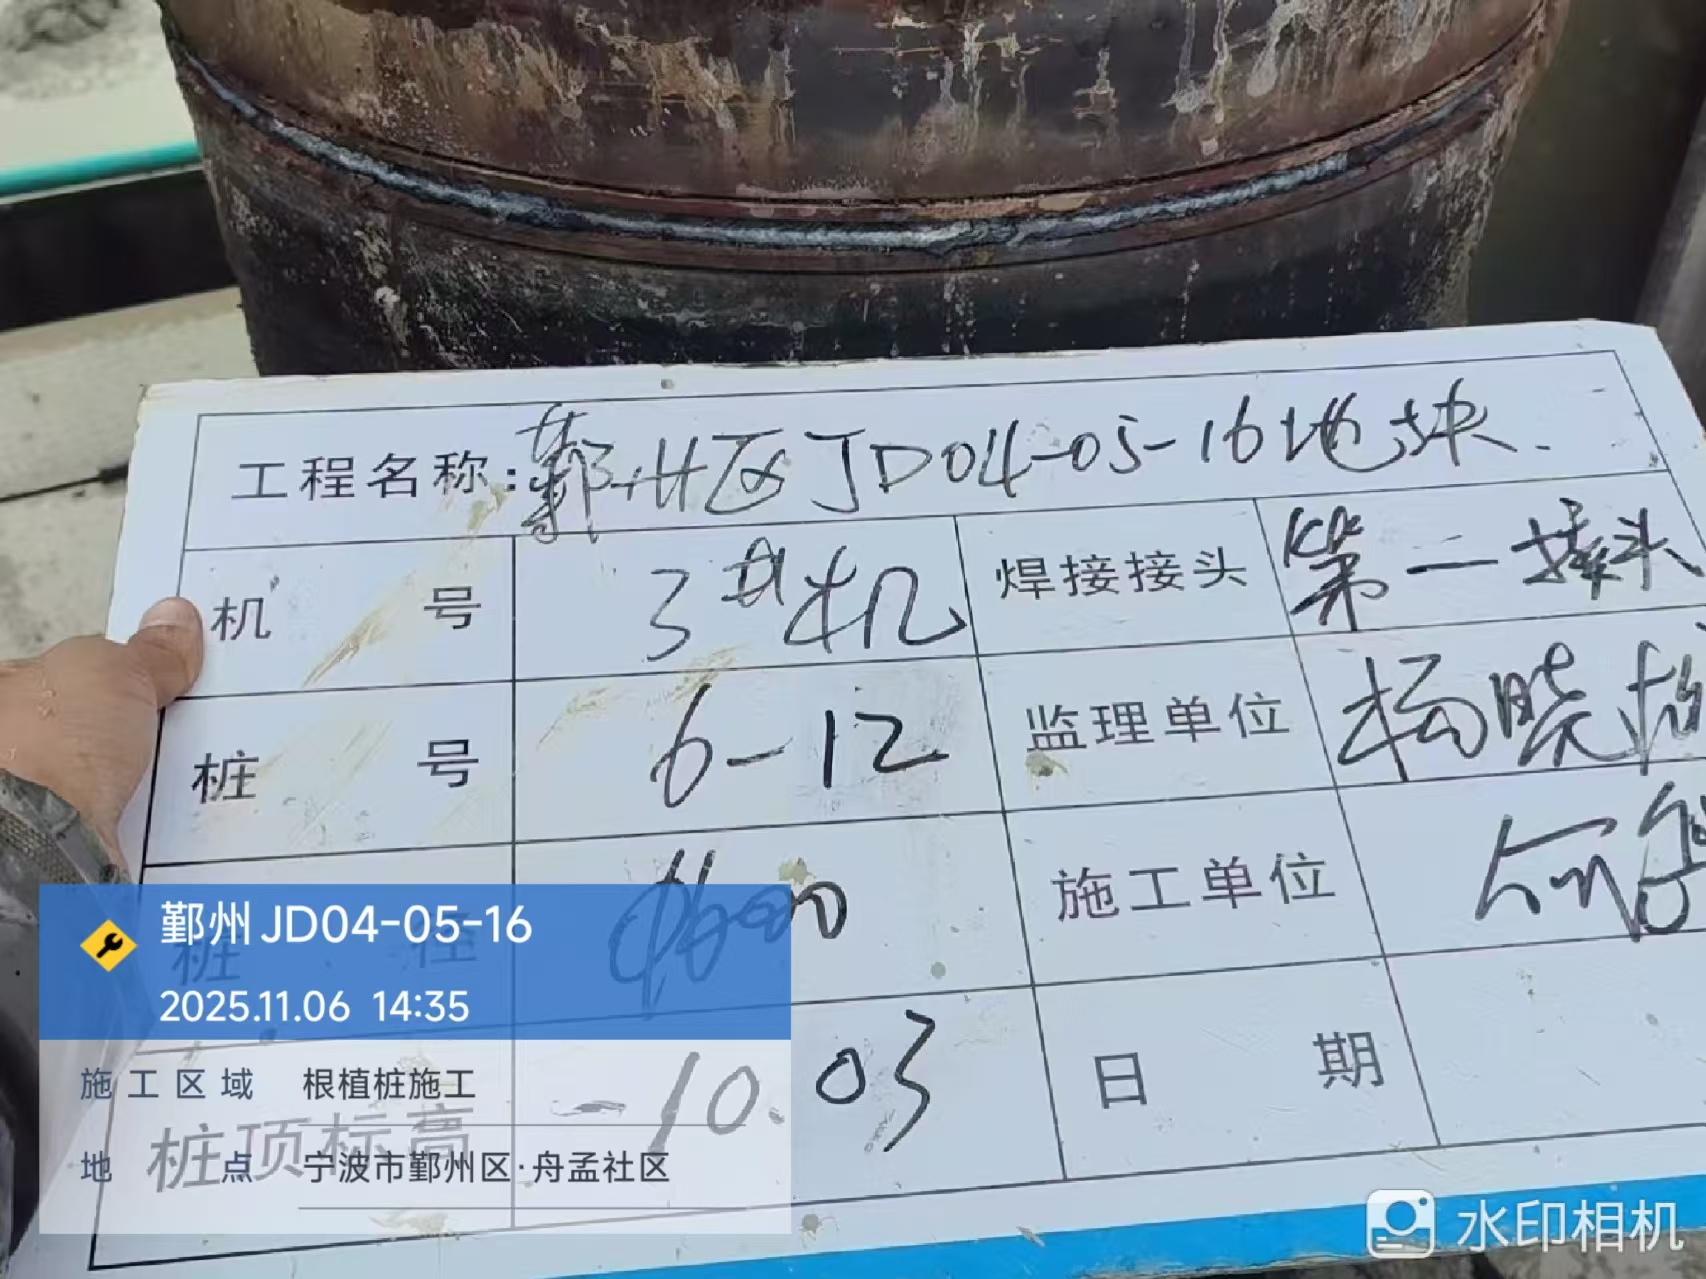 工程名称:鄞州区JD04-05-16地块.
机号 3#机 焊接接头 第一接头
桩号 6-12 监理单位 杨晓
桩径 施工单位
桩顶标高 -10.03 日期
鄞州JD04-05-16
2025.11.06 14:35
施工区域 根植桩施工
地点 宁波市鄞州区·舟孟社区
水印相机